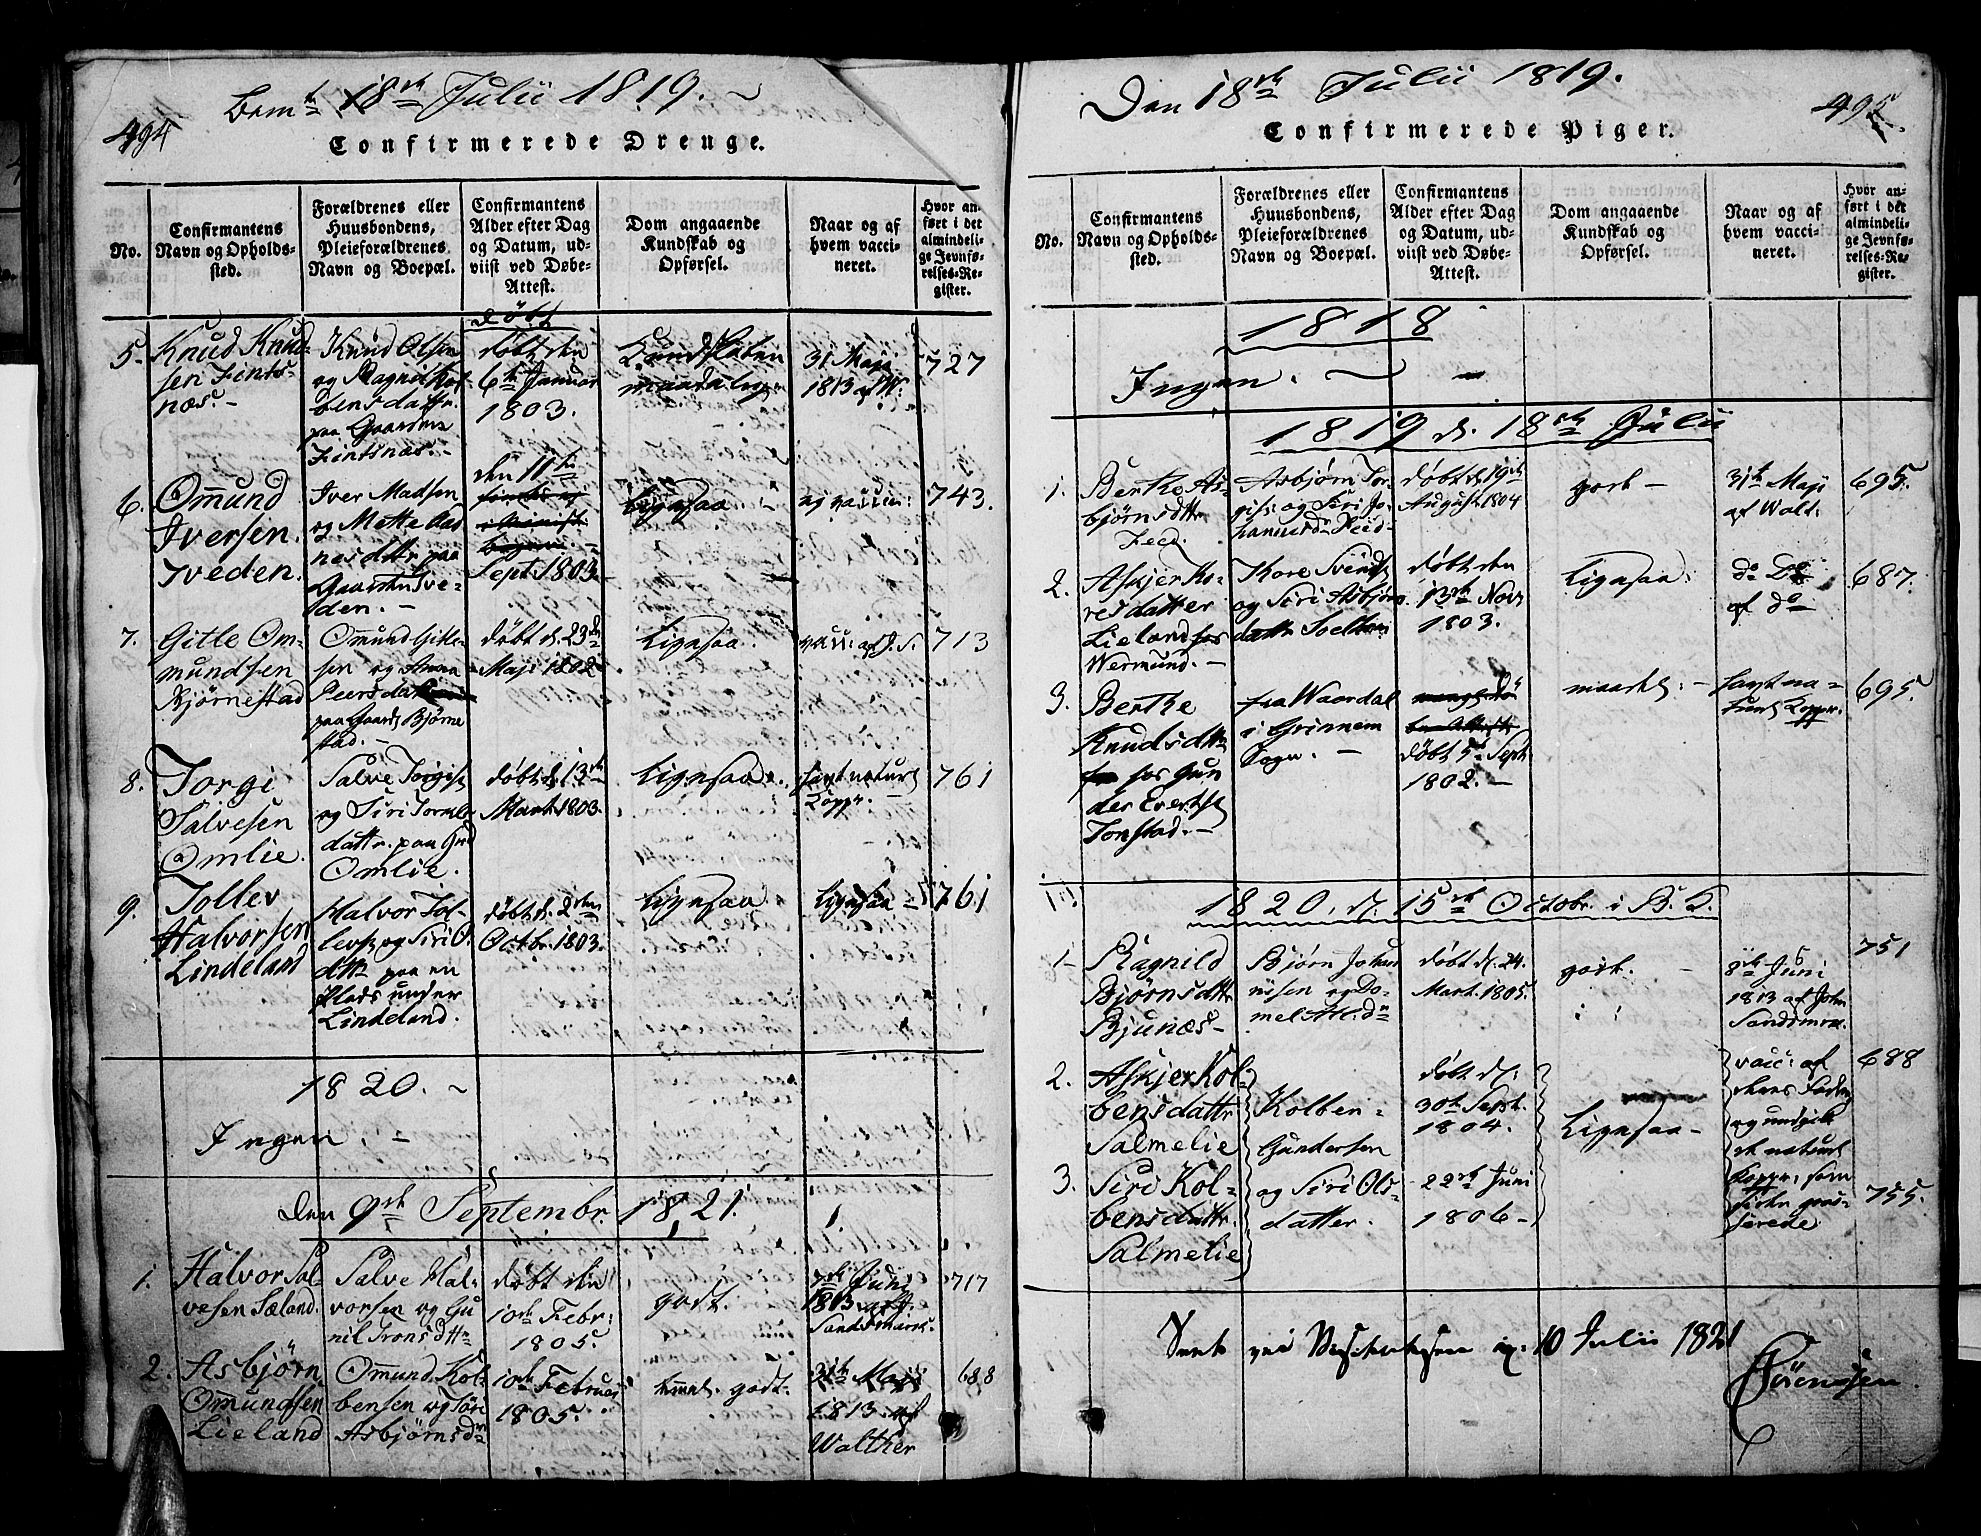 494
18de Julii 1819.
Confirmerede Drenge.
No.
Confirmantens
Navn og Opholds-
sted.
Forældrenes eller
Huusbondens,
Pleieforældrenes
Navn og Boepæl.
Confirmantens
Alder efter Dag
og Datum, ud-
viist ved Døbe-
Attest.
Dom angaaende
Kundskab og
Opførsel.
Naar og af
hvem vacci-
neret.
Hvor an-
ført i det
almindeli-
ge Jevnfø-
relses-Re-
gister.
døbt
5.
Knud Knud-
sen Fints-
næs.
Knud Olsen
og Magnil Kol
bensdattr.
paa Gaarden
Fintsnæs.
døbt den
6te Januar
1803.
Kundskaben
maadelig
31 Maji
1813 af W.
727
6.
Ommund
Iversen.
Iveden.
Iver Madsen
og Mette
nesdttr. paa
Gaarden Ive-
den.
den 11te
Sept 1803.
ligesaa
ej vaccin:
743.
7.
Gitle Om-
mundsen
Bjørnestad
Ommund Gitle-
sen og
Peersda
paa Gaard Bjørne
stad.
døbt d. 23de
Maji 1802
Ligesaa.
vacc: af J. S.
713
8.
Torgi
Salvesen
Omlie.
Salve Torgis
og Siri
dattr. paa Grd
Omlie.
døbt d. 13de
Mart. 1803.
Ligesaa.
havt naturl
Kopper.
761
9.
Tollev
Halvorsen
Lindeland
Halvor Tol-
levs. og Siri O.
dttr paa en
Plads under
Lindeland.
døbt d. 2den
Octbr. 1803.
Ligesaa
Ligesaa
761
1820.
Ingen.
Den 9de Septembr. 1821.
1.
Halvor Sal-
vesen Sæland.
Salve Hal-
vorsen og Gu
nil Tronsdttr
døbt den
10de Febr:
1805.
godt.
7de Juni
1813 af J.
Sandsmark.
717
2.
Asbjørn
Ommundsen
Lieland
Ommund Kol-
bensen og Tore
Asbjørnsdtr
10de Februar
1805.
godt.
31te Maji
1813 af
Walther
688
Den 18de Julii 1819.
495.
Confirmerede Piger.
No.
Confirmantens
Navn og Opholds-
sted.
Forældrenes eller
Huusbondens,
Pleieforældrenes
Navn og Boepæl.
Confirmantens
Alder efter Dag
og Datum, ud-
viist ved Døbe-
Attest.
Dom angaaende
Kundskab og
Opførsel.
Naar og af
hvem vacci-
neret.
Hvor an-
ført i det
almindeli-
ge Jevnfø-
relses-Re-
gister.
1818
Ingen.
1819 d. 18de Julii
1.
Berthe As-
bjørnsdttr
Feed.
Asbjørn Tor-
gis: og Siri Jo-
døbt d. 19de
August 1804
godt
31te Maji
af Walt:
695.
2.
Askjer Ko-
resdatter
Lieland hos
Wermund.
Kore Svends
og Siri Asbjørns
dattr
døbt den
13de Novr
1803.
Ligesaa:
do Do
af do
687.
3.
Berthe
Knudsdttr
hos Gun
der Everts
Tonstad.
fra Waardal
i Grinnem
Sogn.
døbt 5te Sept
1802.
maadel:
havt na-
turl Kopper.
695.
1820, d. 15de Octobr. i B. K.
1
Ragnild
Bjørnsdttr
Bjunes
Bjørn Johan
nisen og Do-
døbt d. 24.
Mart. 1805.
godt.
8de Juni
1813 af John
Sandsmrk.
751
2.
Askjer Kol-
bensdattr
Salmelie
Kolben
Gundersen
og Siri Ols-
datter.
døbt d.
30te Sept.
1804.
Ligesaa
vacc: af
hans Fader
og undgik
de naturl
Kopper, som
siden gras-
serede
688
3.
Siri Kol-
bensdattr.
Salmelie
22de Juni
1806
755.
10 Julii 1821
Sørensen